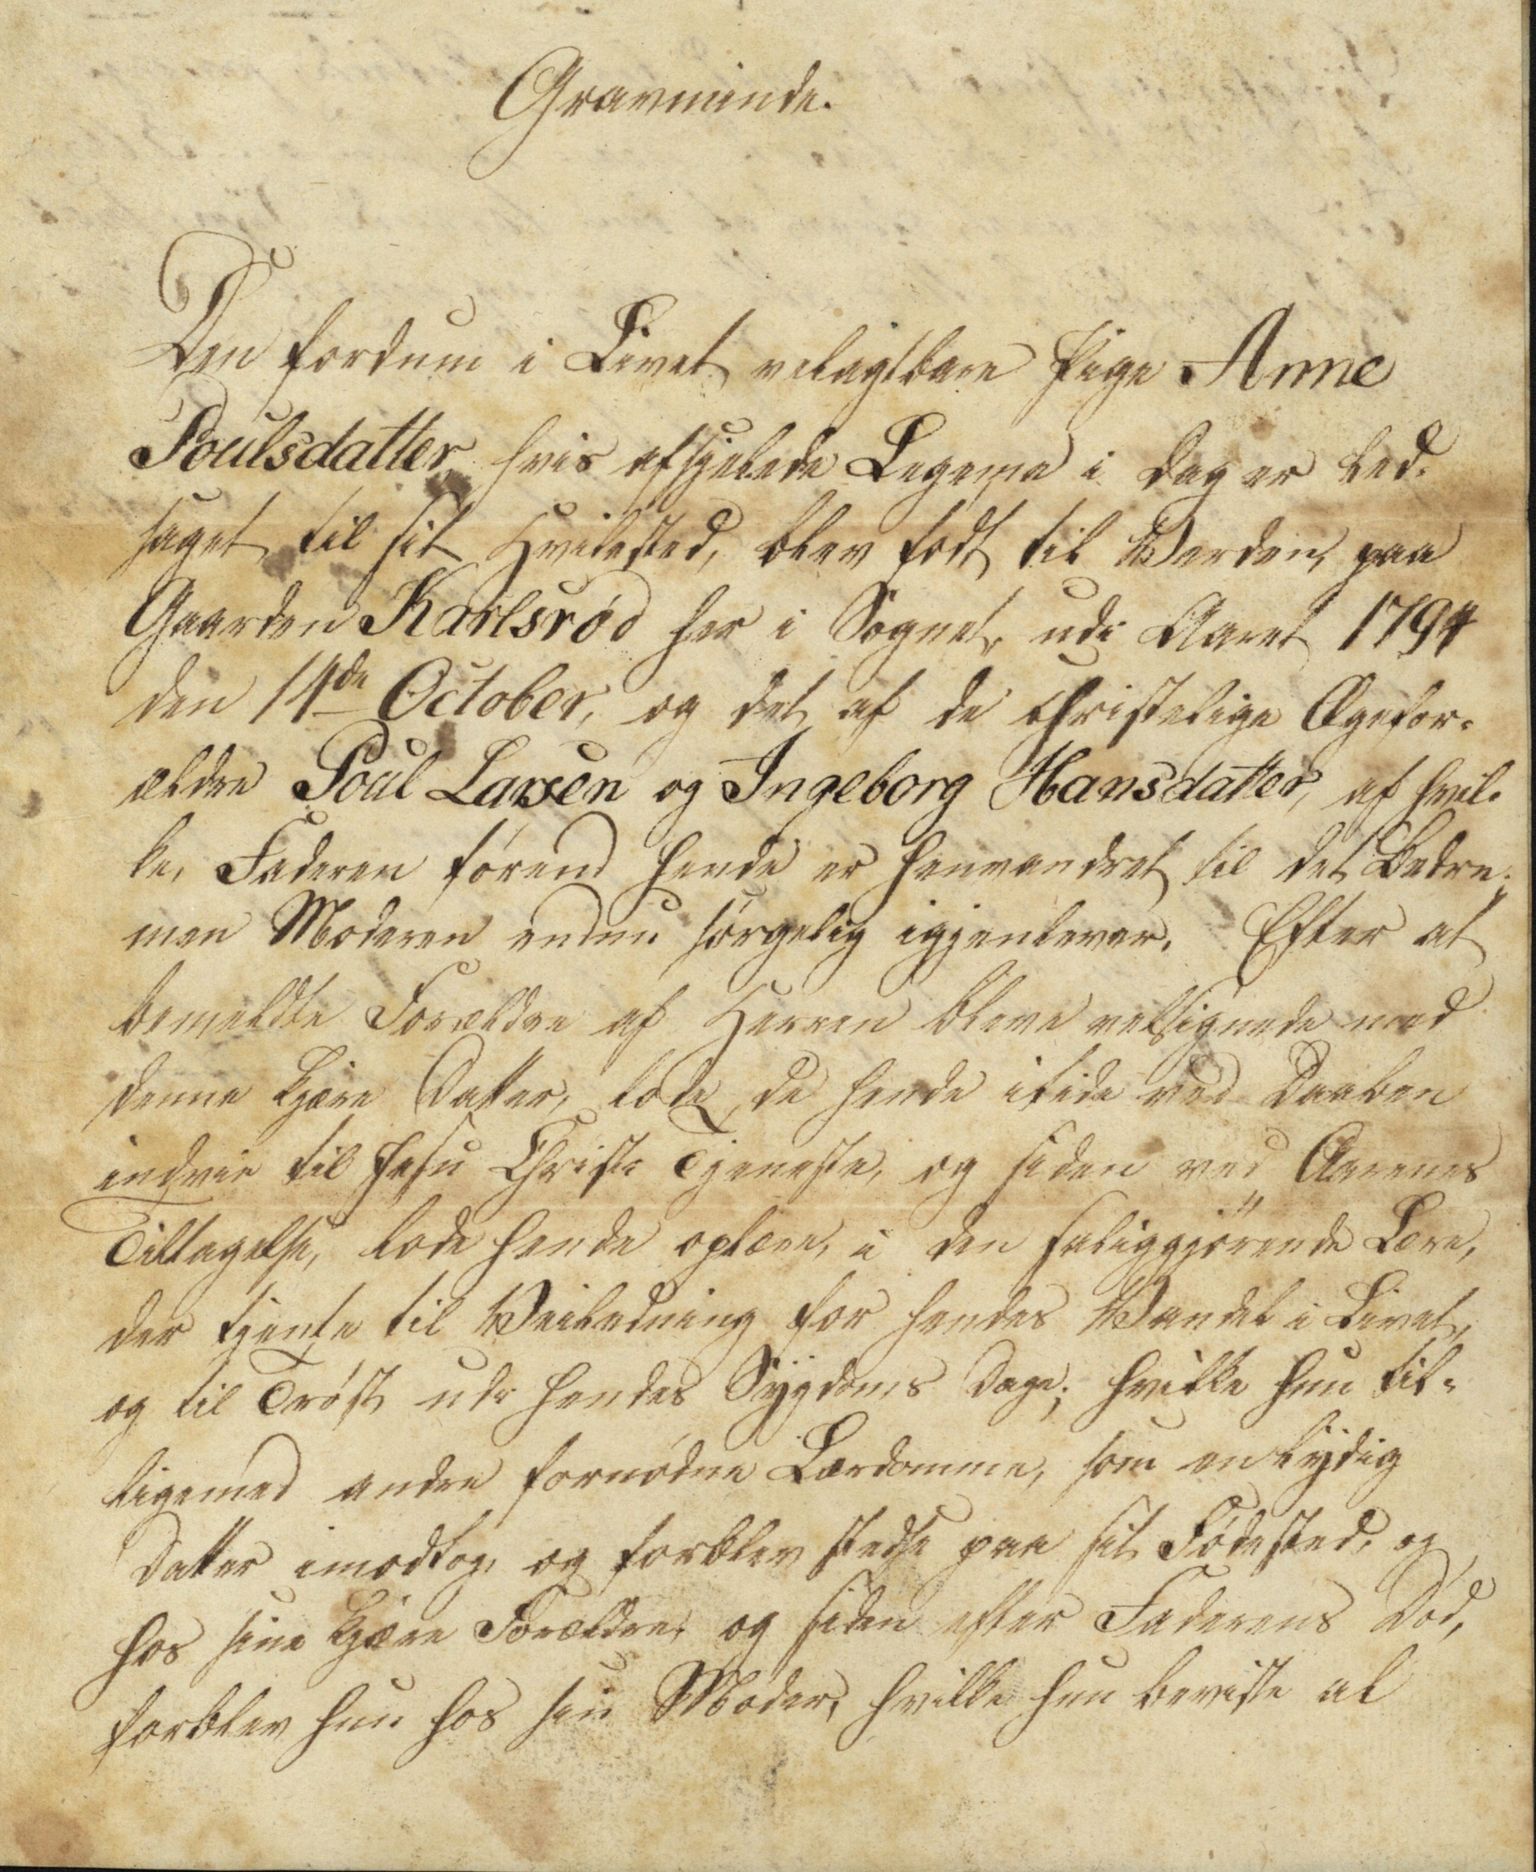 Gravminde.
Den fordum i Livet velagtbare Pige Anne
Poulsdatter hvis afsjelede Legeme i Dag er led-
saget til sit Hvilested, blev født til Verden, paa
Gaarden Karlsrød her i Sognet, udi Aaret 1794
den 14de October, og det af de christelige Ægtefor-
ældre Poul Larsen og Ingeborg Hansdatter, af hvil-
ke, Faderen førend hende er henvandret til det Bedre;
men Moderen endnu sørgelig igjenlever. Efter at
bemeldte Forældre af Herren bleve velsignede med
denne kjære Datter, lode de hende itide ved Daaben
indvie til Jesu Christi Tjeneste, og siden ved Aarenes
Tiltagelse, lode hende oplære, i den saliggjörende Lære,
der tjente til Veiledning for hendes Vandel i Livet,
og til Trøst udi hendes Sÿgdoms Dage; hvilke hun til-
ligemed andre fornødne Lærdomme, som en lÿdig
Datter imodtog, og forblev stedse paa sit Fødested, og
hos sine kjære Forældre, og siden efter Faderens Død,
forblev hun hos sin Moder, hvilke hun beviste al